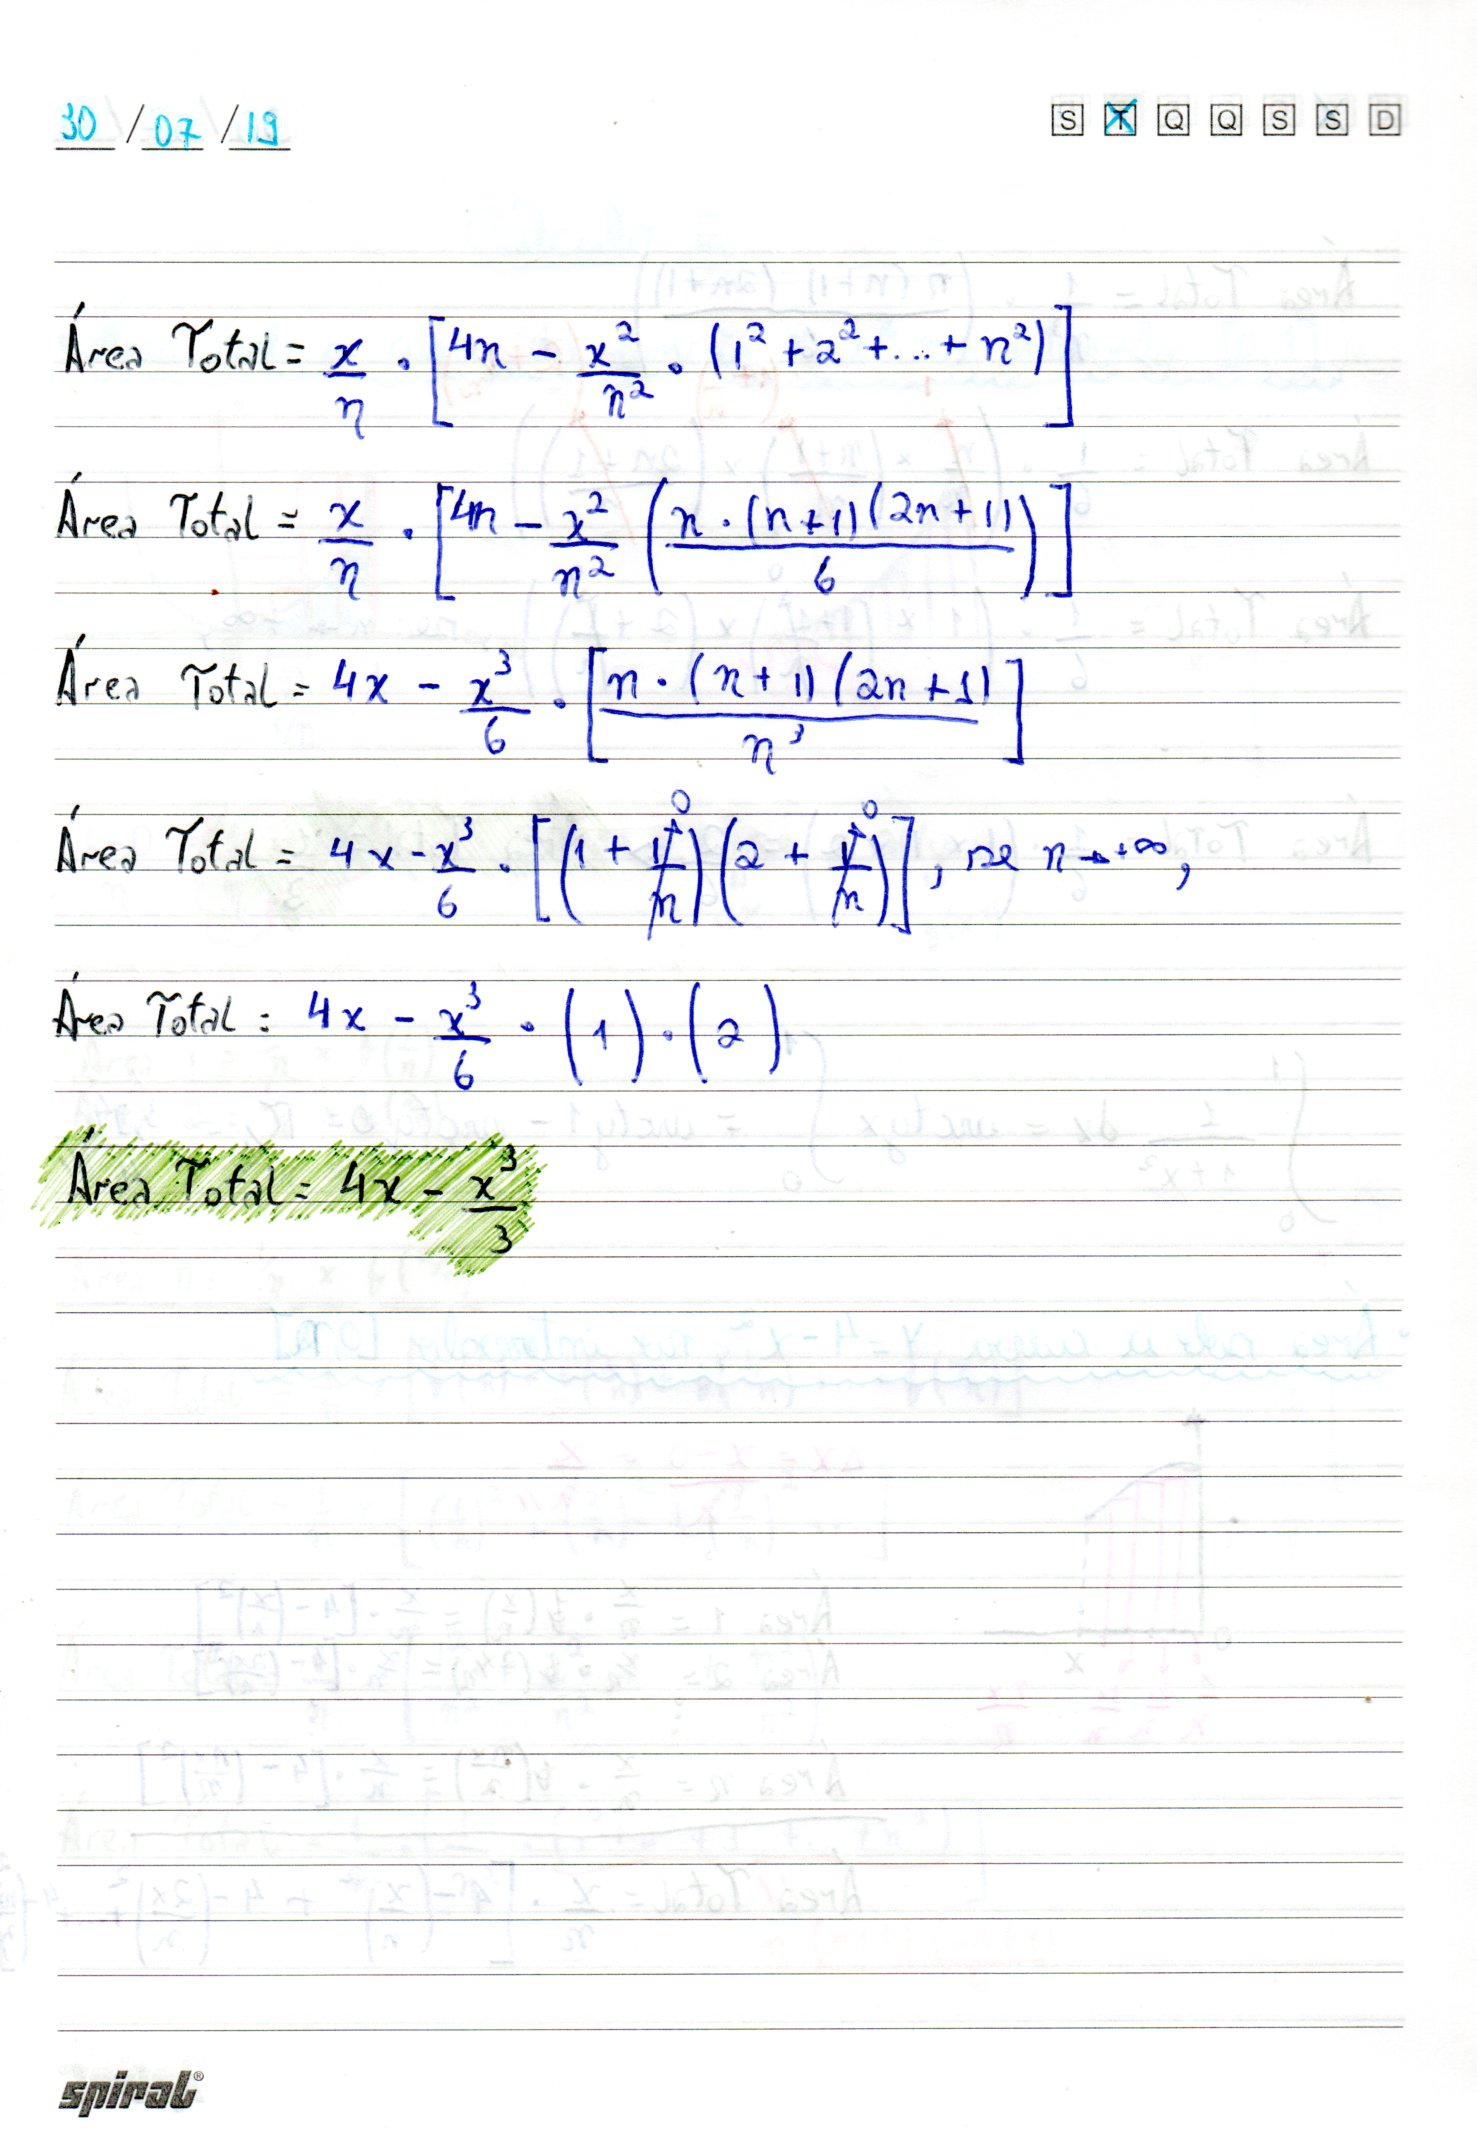 30 / 07 / 19 S T Q Q S S D
Área Total = x/n · [4n - x²/n² · (1² + 2² + ... + n²)]
Área Total = x/n · [4n - x²/n² (n · (n+1)(2n+1)/6)]
Área Total = 4x - x³/6 · [n · (n+1)(2n+1)/n³]
Área Total = 4x - x³/6 · [(1 + 1/n→0)(2 + 1/n→0)], se n → +∞,
Área Total = 4x - x³/6 · (1) · (2)
Área Total = 4x - x³/3
spiral®